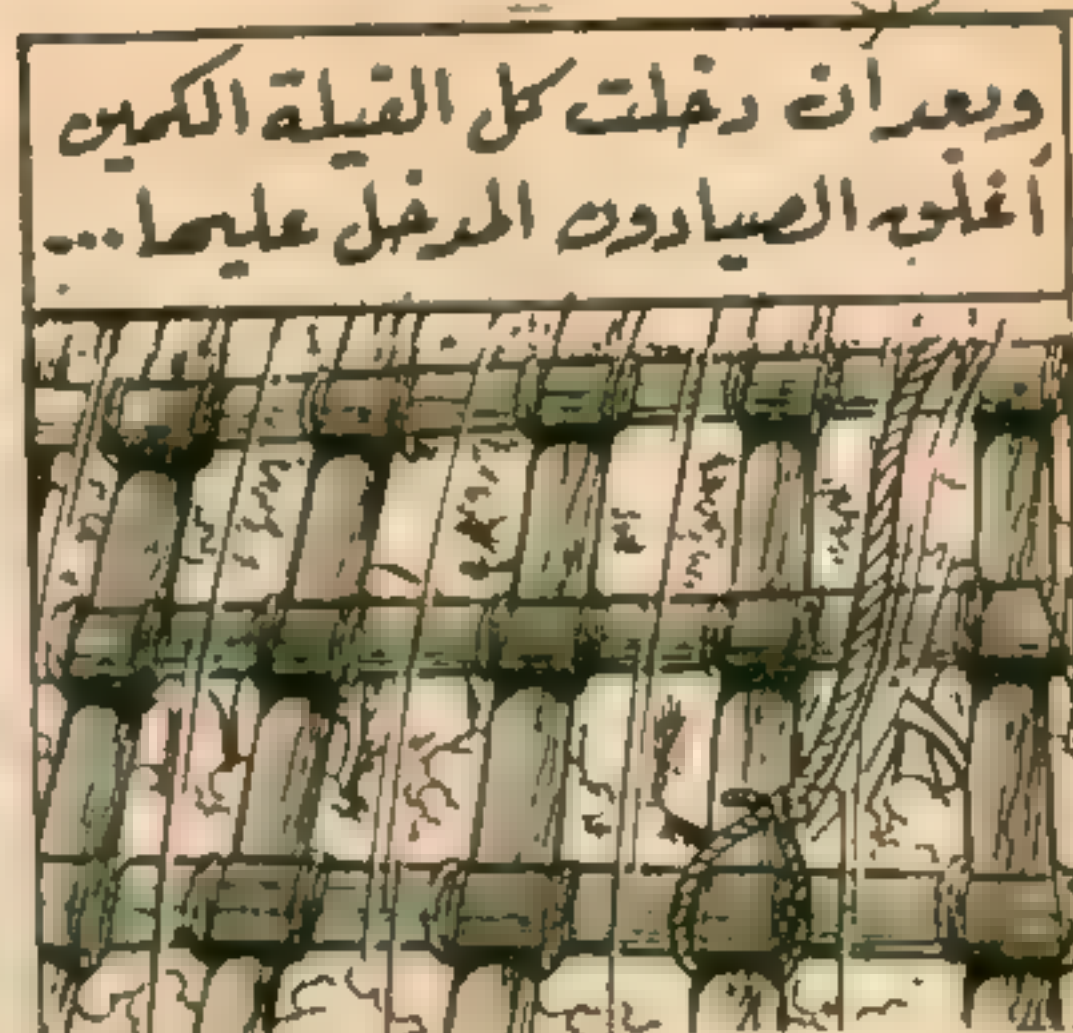 وبعد أن دخلت كل الفيلة الكمين
أغلق الصيادون المدخل عليها...